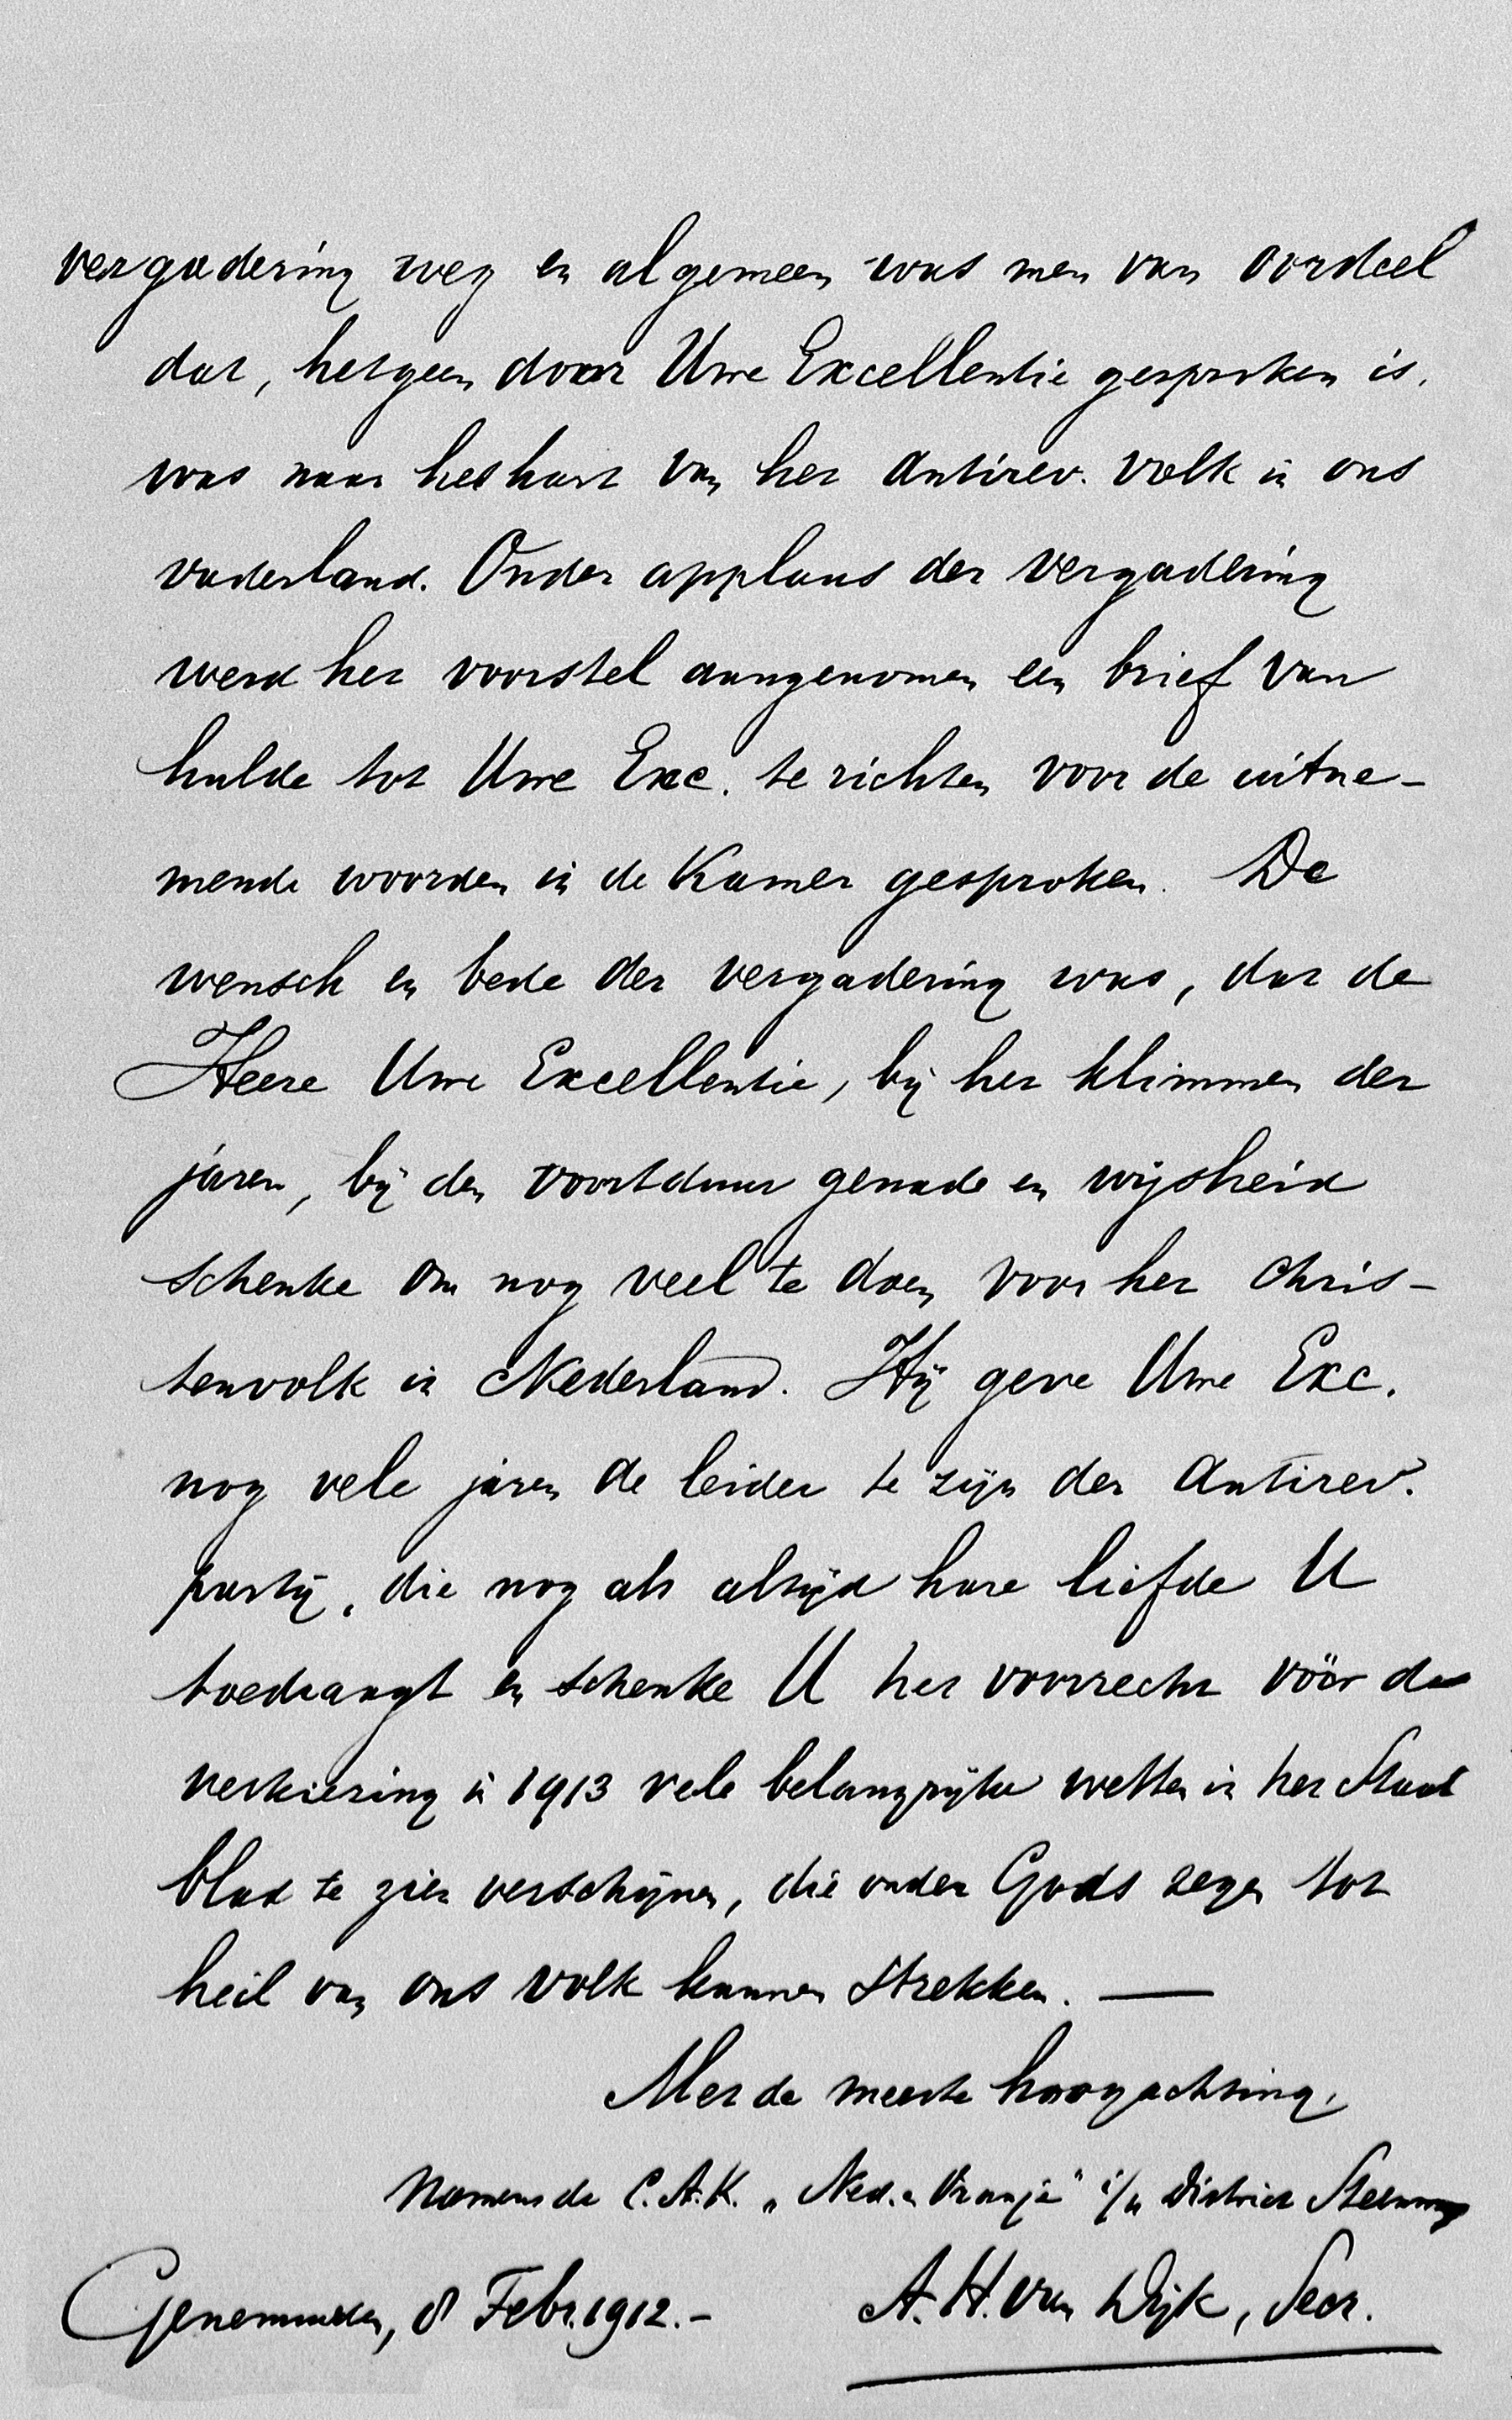 vergadering weg en algemeen was men van oordeel
dat, hetgeen door Uwe Excellentie gesproken is,
was naar het hart van het Antirev. volk in ons
vaderland. Onder applaus der vergadering
werd het voorstel aangenomen een brief van
hulde tot Uwe Exc. te richten voor de uitne-
mende woorden in de Kamer gesproken. De
wensch en bede der vergadering was, dat de
Heere Uwe Excellentie, bij het klimmen der
jaren, bij den voortduur genade en wijsheid
schenke om nog veel te doen voor het Chris-
tenvolk in Nederland. Hij geve Uwe Exc.
nog vele jaren de leider te zijn der Antirev.
partij, die nog als altijd hare liefde U
toedraagt en schenke U het voorrecht vóór de
verkiezing in 1913 vele belangrijke wetten in het Staat
blad te zien verschijnen, die onder Gods zegen tot
heil van ons volk kunnen strekken. —
Met de meeste hoogachting,
Namens de C.A.K. „Ned. en Oranje" i/h District Steenwijk
Genemuiden, 8 Febr. 1912.- A. H. van Dijk, Secr.